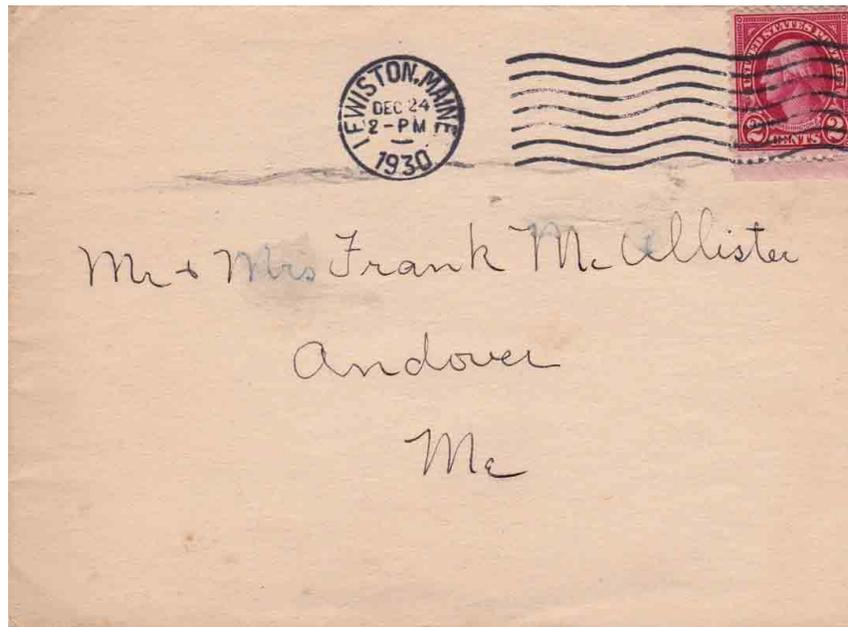 LEWISTON, MAINE
DEC 24
2-PM
1930
UNITED STATES POSTAGE
2 CENTS 2
Mr + Mrs Frank McAllister
Andover
Me